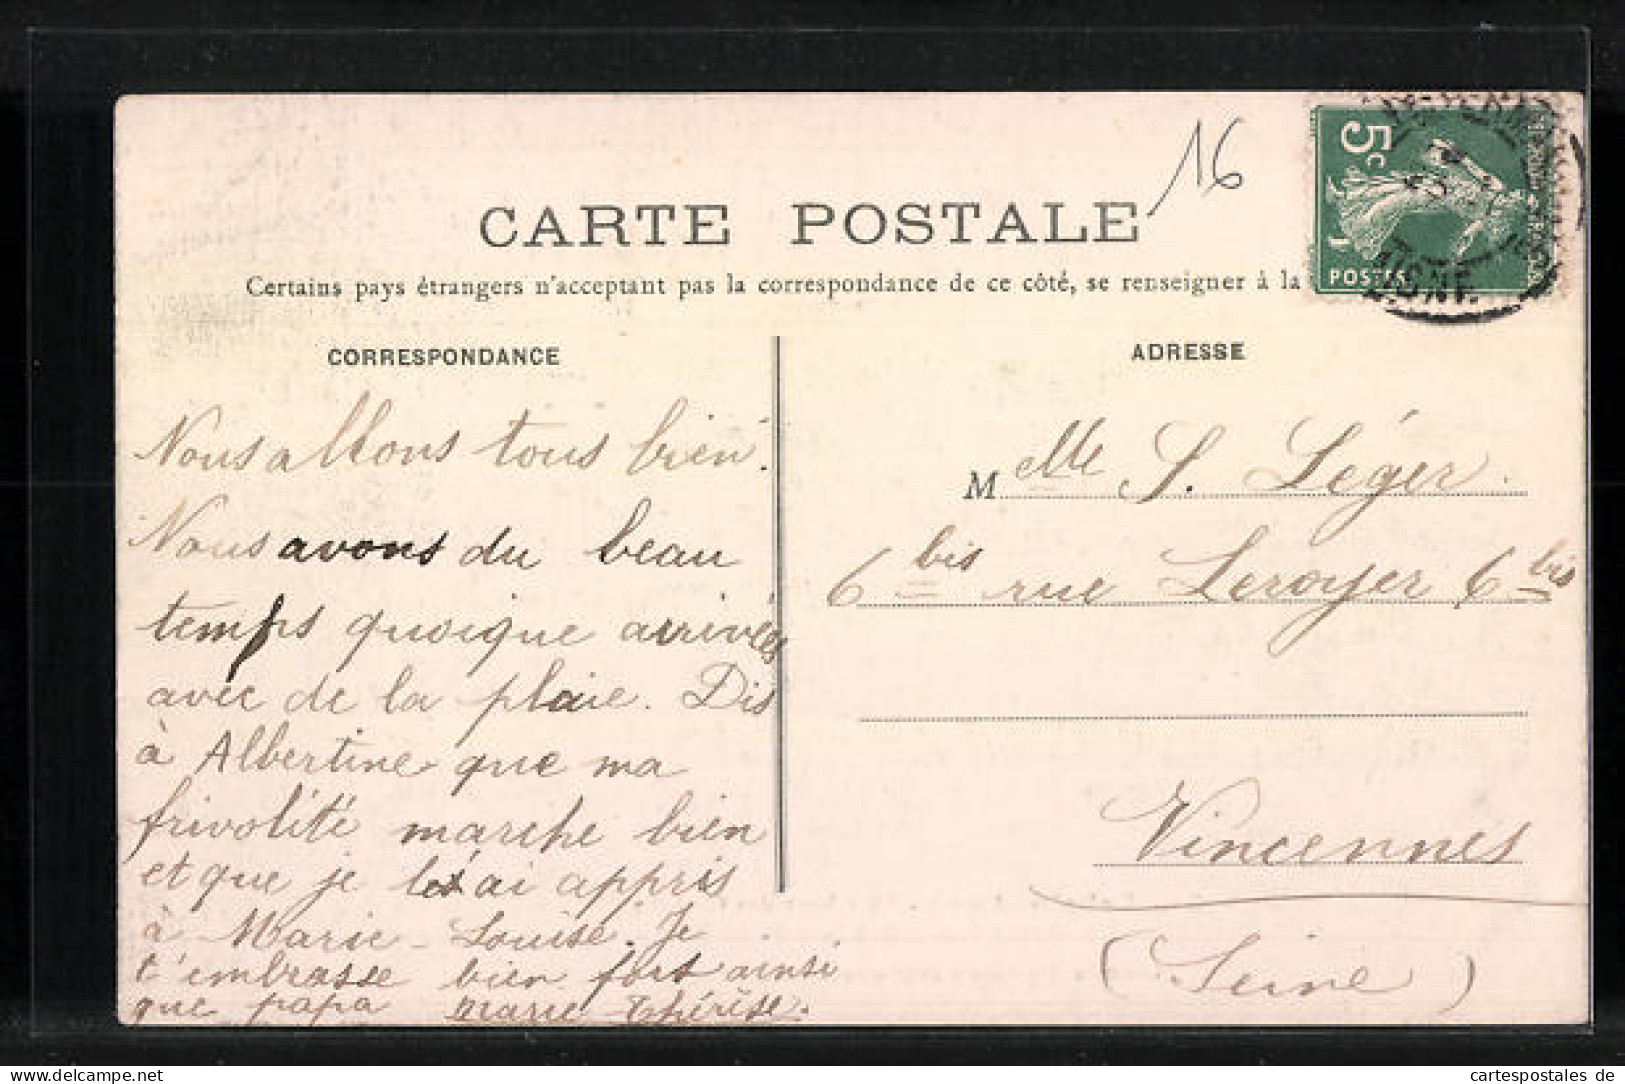 16
CARTE POSTALE
Certains pays étrangers n'acceptant pas la correspondance de ce côté, se renseigner à la
5c
POSTES
AISNE
CORRESPONDANCE
Nous allons tous bien.
Nous avons du beau
temps quoique arrivées
avec de la pluie. Dis
à Albertine que ma
frivolité marche bien
et que je l'ai appris
à Marie-Louise. Je
t'embrasse bien fort ainsi
que papa Marie Thérèse.
ADRESSE
Melle S. Léger.
6 bis rue Leroyer 6 bis
Vincennes
(Seine)
cartespostales de